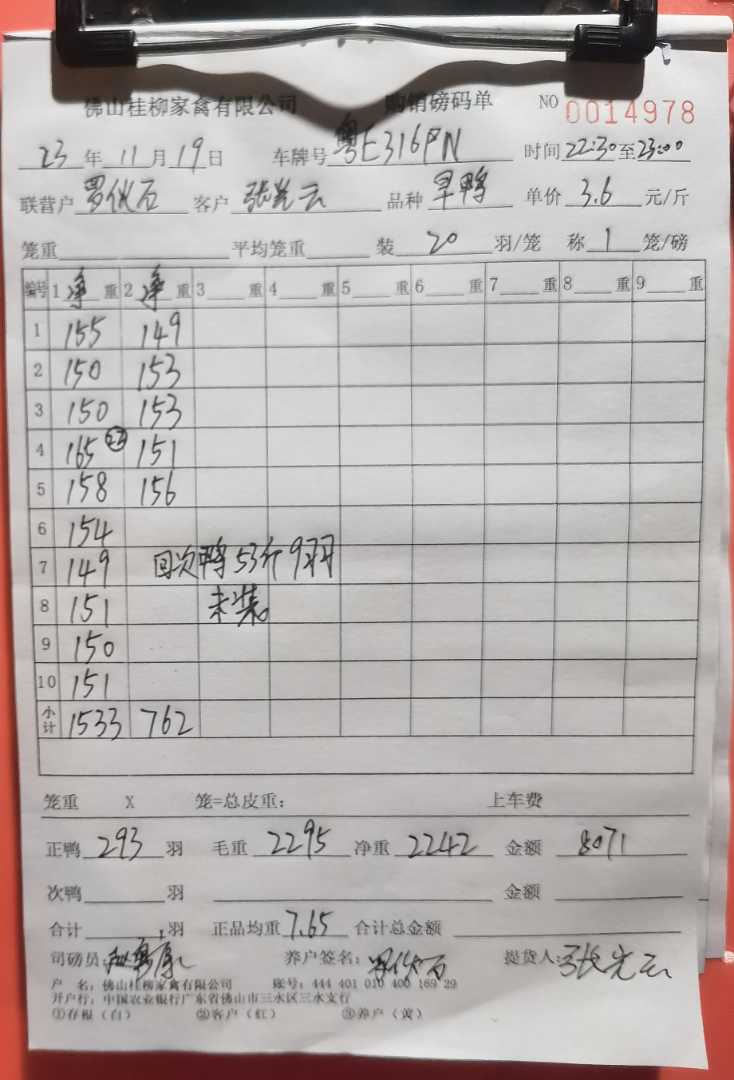 佛山桂柳家禽有限公司 购销磅码单 NO 0014978
23年11月19日 车牌号粤E316PN 时间22:30至23:00
联营户 罗仪石 客户 张光云 品种 旱鸭 单价 3.6 元/斤
笼重 平均笼重 装 20 羽/笼 称 1 笼/磅
编号 1 净 重 2 净 重 3 重 4 重 5 重 6 重 7 重 8 重 9 重
1 155 149
2 150 153
3 150 153
4 165 23 151
5 158 156
6 154
7 149 回次鸭53斤9羽
8 151 未装
9 150
10 151
小计 1533 762
笼重 X 笼=总皮重: 上车费
正鸭 293 羽 毛重 2295 净重 2242 金额 8071
次鸭 羽 金额
合计 羽 正品均重 7.65 合计总金额
司磅员: 养户签名: 罗仪石 提货人: 张光云
户 名: 佛山桂柳家禽有限公司 账号: 444 401 010 400 169 29
开户行: 中国农业银行广东省佛山市三水区三水支行
①存根(白) ②客户(红) ③养户(黄)